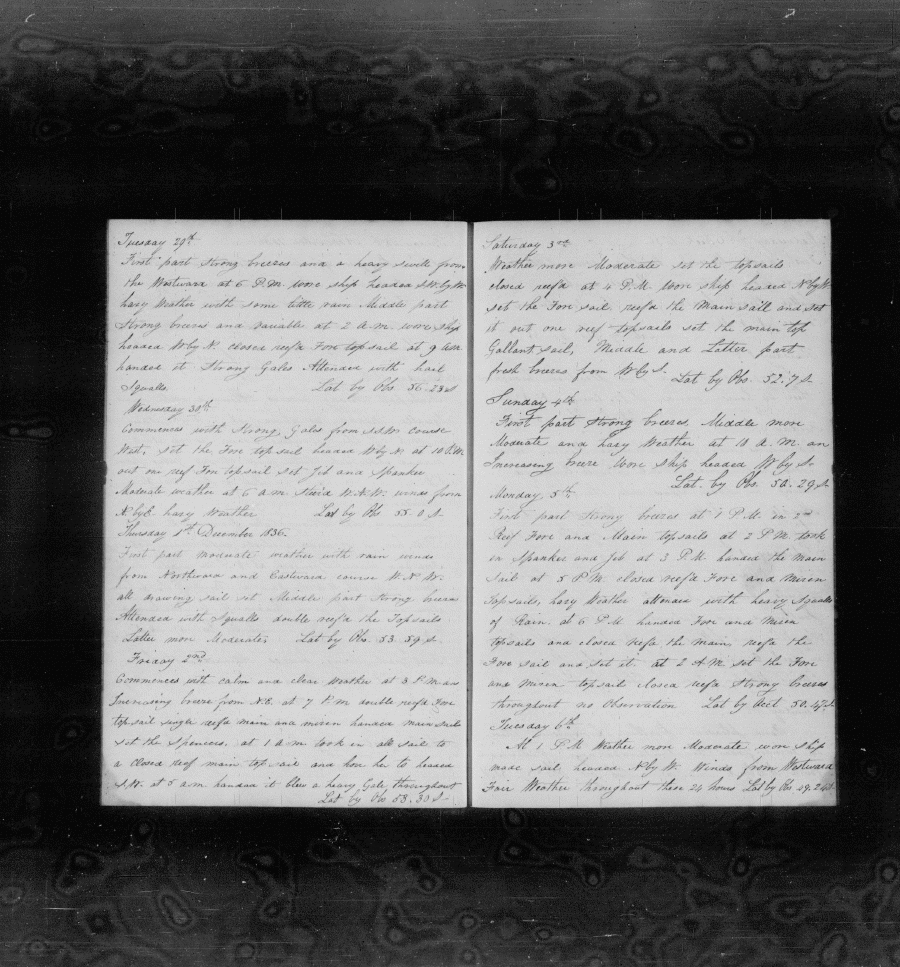 Tuesday 29th
First part strong breezes and a heavy swell from
the Westward at 6 P.M. wore ship headed S.W. by W.
hazy Weather with some little rain Middle part
Strong breezes and variable at 2 a.m. wore ship
headed W by N. closed reefd Fore topsail at 9 a.m
handed it Strong Gales Attended with hail
Squalls Lat by Obs 56.23 S
Wednesday 30th
Commences with Strong Gales from course
West, set the Fore topsail headed W by N. at 10 P.M.
out one reef Fore topsail set Jib and Spanker
Moderate weather at 6 a.m. Steerd W.N.W. winds from
N by E. hazy Weather Lat by Obs 55.0 S
Thursday 1st December 1836.
First part moderate weather with rain winds
from Northward and Eastward course W.N.W.
all drawing sail set Middle part Strong breezes
Attended with Squalls double reefd the Topsails
Latter more Moderate. Lat by Obs. 53.59 S.
Friday 2nd
Commences with calm and clear Weather at 3 P.M an
Increasing breeze from N.E. at 7 P.m double reefd Fore
topsail single reefd main and mizen handed main sail
set the Spencers, at 1 a.m took in all sail to
a closed reef main topsail and hove her to headed
S.W. at 5 a.m. handed it blew a heavy Gale throughout
Lat by Obs 53.30 S
Saturday 3rd
Weather more Moderate set the topsails
closed reefd at 4 P.M. Wore ship headed N by W.
set the Fore sail reefd the Main sail and set
it out one reef topsails set the main top
Gallant sail, Middle and Latter part
fresh breezes from W by S. Lat by Obs. 52.7 S.
Sunday 4th
First part Strong breezes, Middle more
Moderate and hazy Weather at 10 A.M. an
Increasing breeze Wore ship headed W by S.
Lat. by Obs. 50.29 S.
Monday 5th
First part strong breezes at 1 P.M. in 2nd
Reef Fore and Main topsails at 2 P.M. took
in Spanker and Jib at 3 P.M. handed the Main
Sail at 5 P.M. closed reefd Fore and Mizen
Topsails, hazy Weather attended with heavy Squalls
of Rain. at 6 P.M handed Fore and Mizen
topsails and closed reefd the main, reefd the
Fore sail and set it. at 2 A.M. set the Fore
and mizen topsail closed reefd Strong breezes
throughout no Observation Lat by Acct 50.47 S.
Tuesday 6th
At 1 P.M Weather more Moderate wore ship
made sail headed N by W. Winds from Westward
Fair Weather throughout these 24 hours Lat by Obs. 49.24 S.